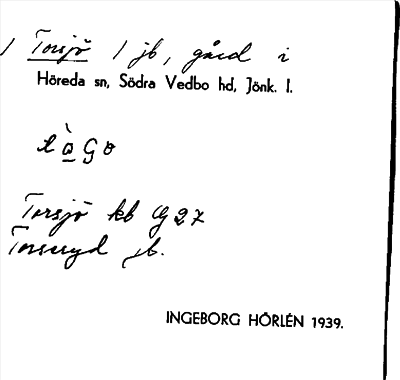 Torsjö 1 jb, gård i
Höreda sn, Södra Vedbo hd, Jönk. l.
Torsjö kb G 27
Torseryd jb.
INGEBORG HÖRLÉN 1939.